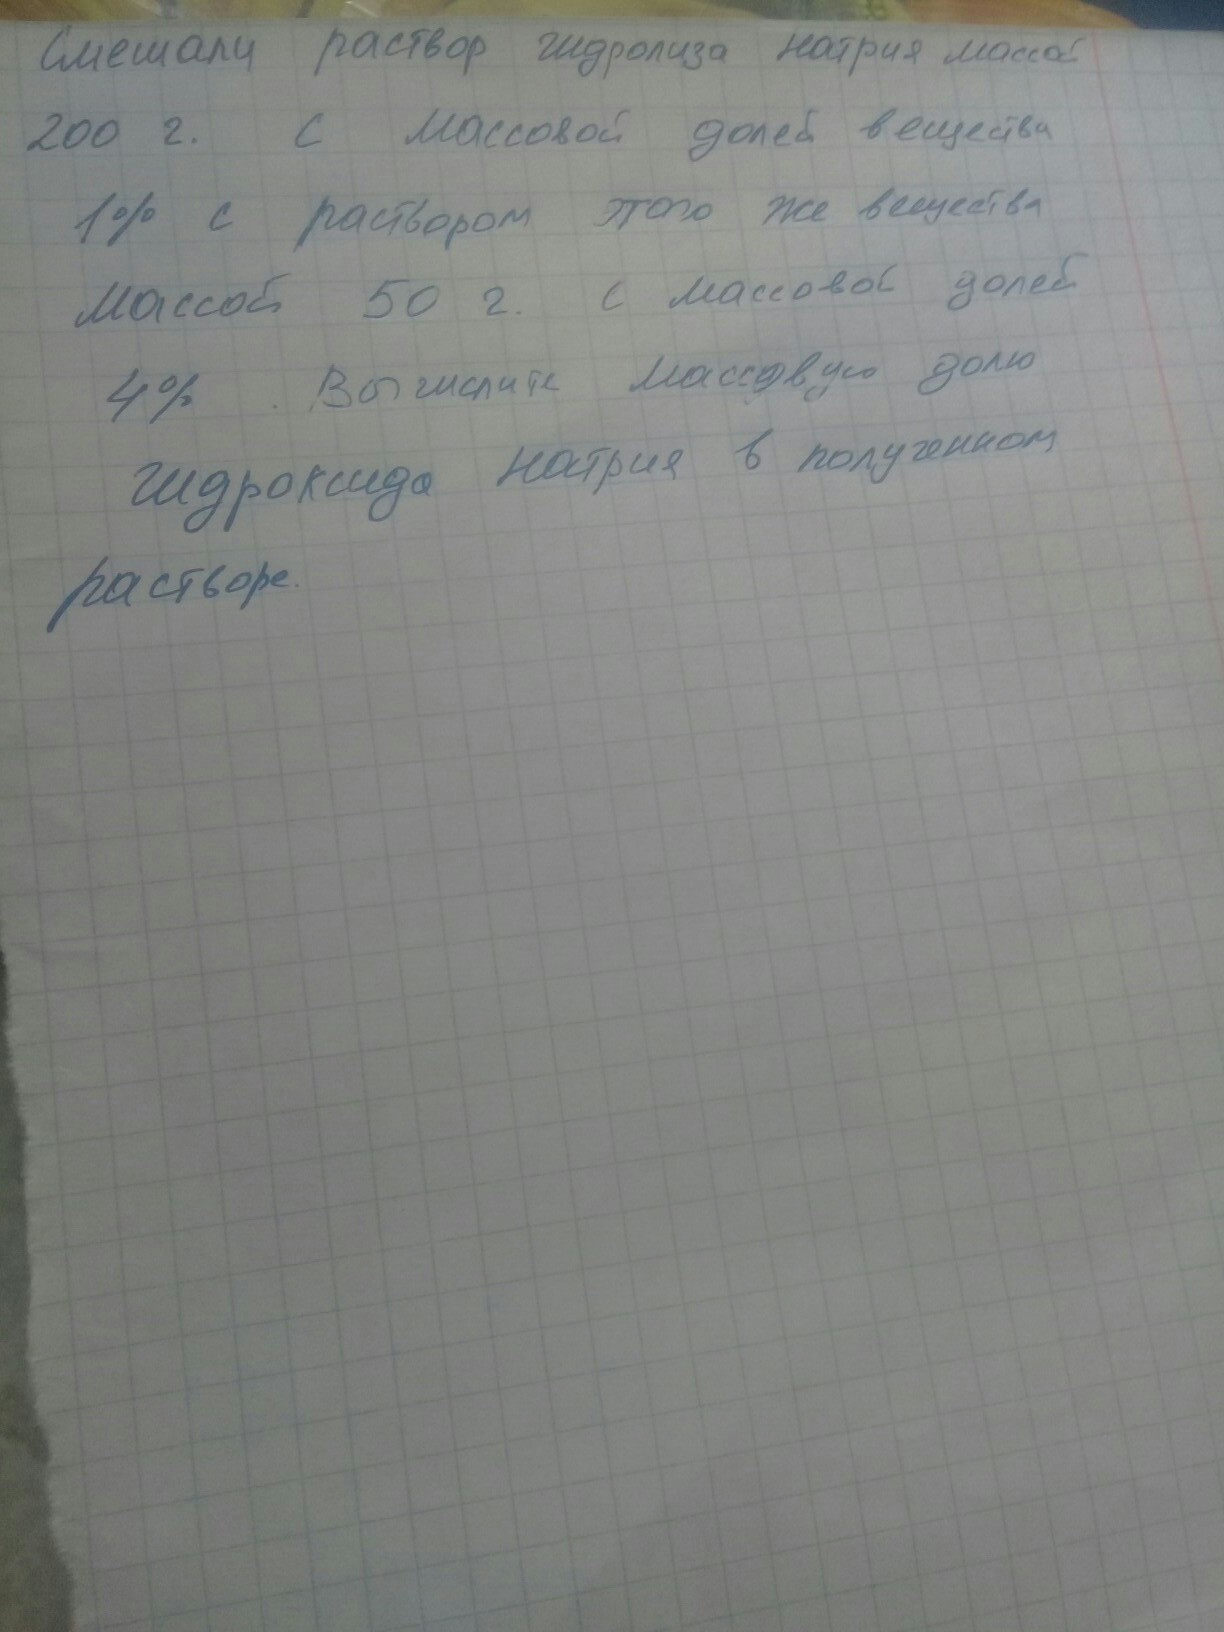 Смешали раствор гидролиза натрия массой
200 г. с массовой долей вещества
1% с раствором этого же вещества
массой 50 г. с массовой долей
4% . Вычислите массовую долю
гидроксида натрия в полученном
растворе.